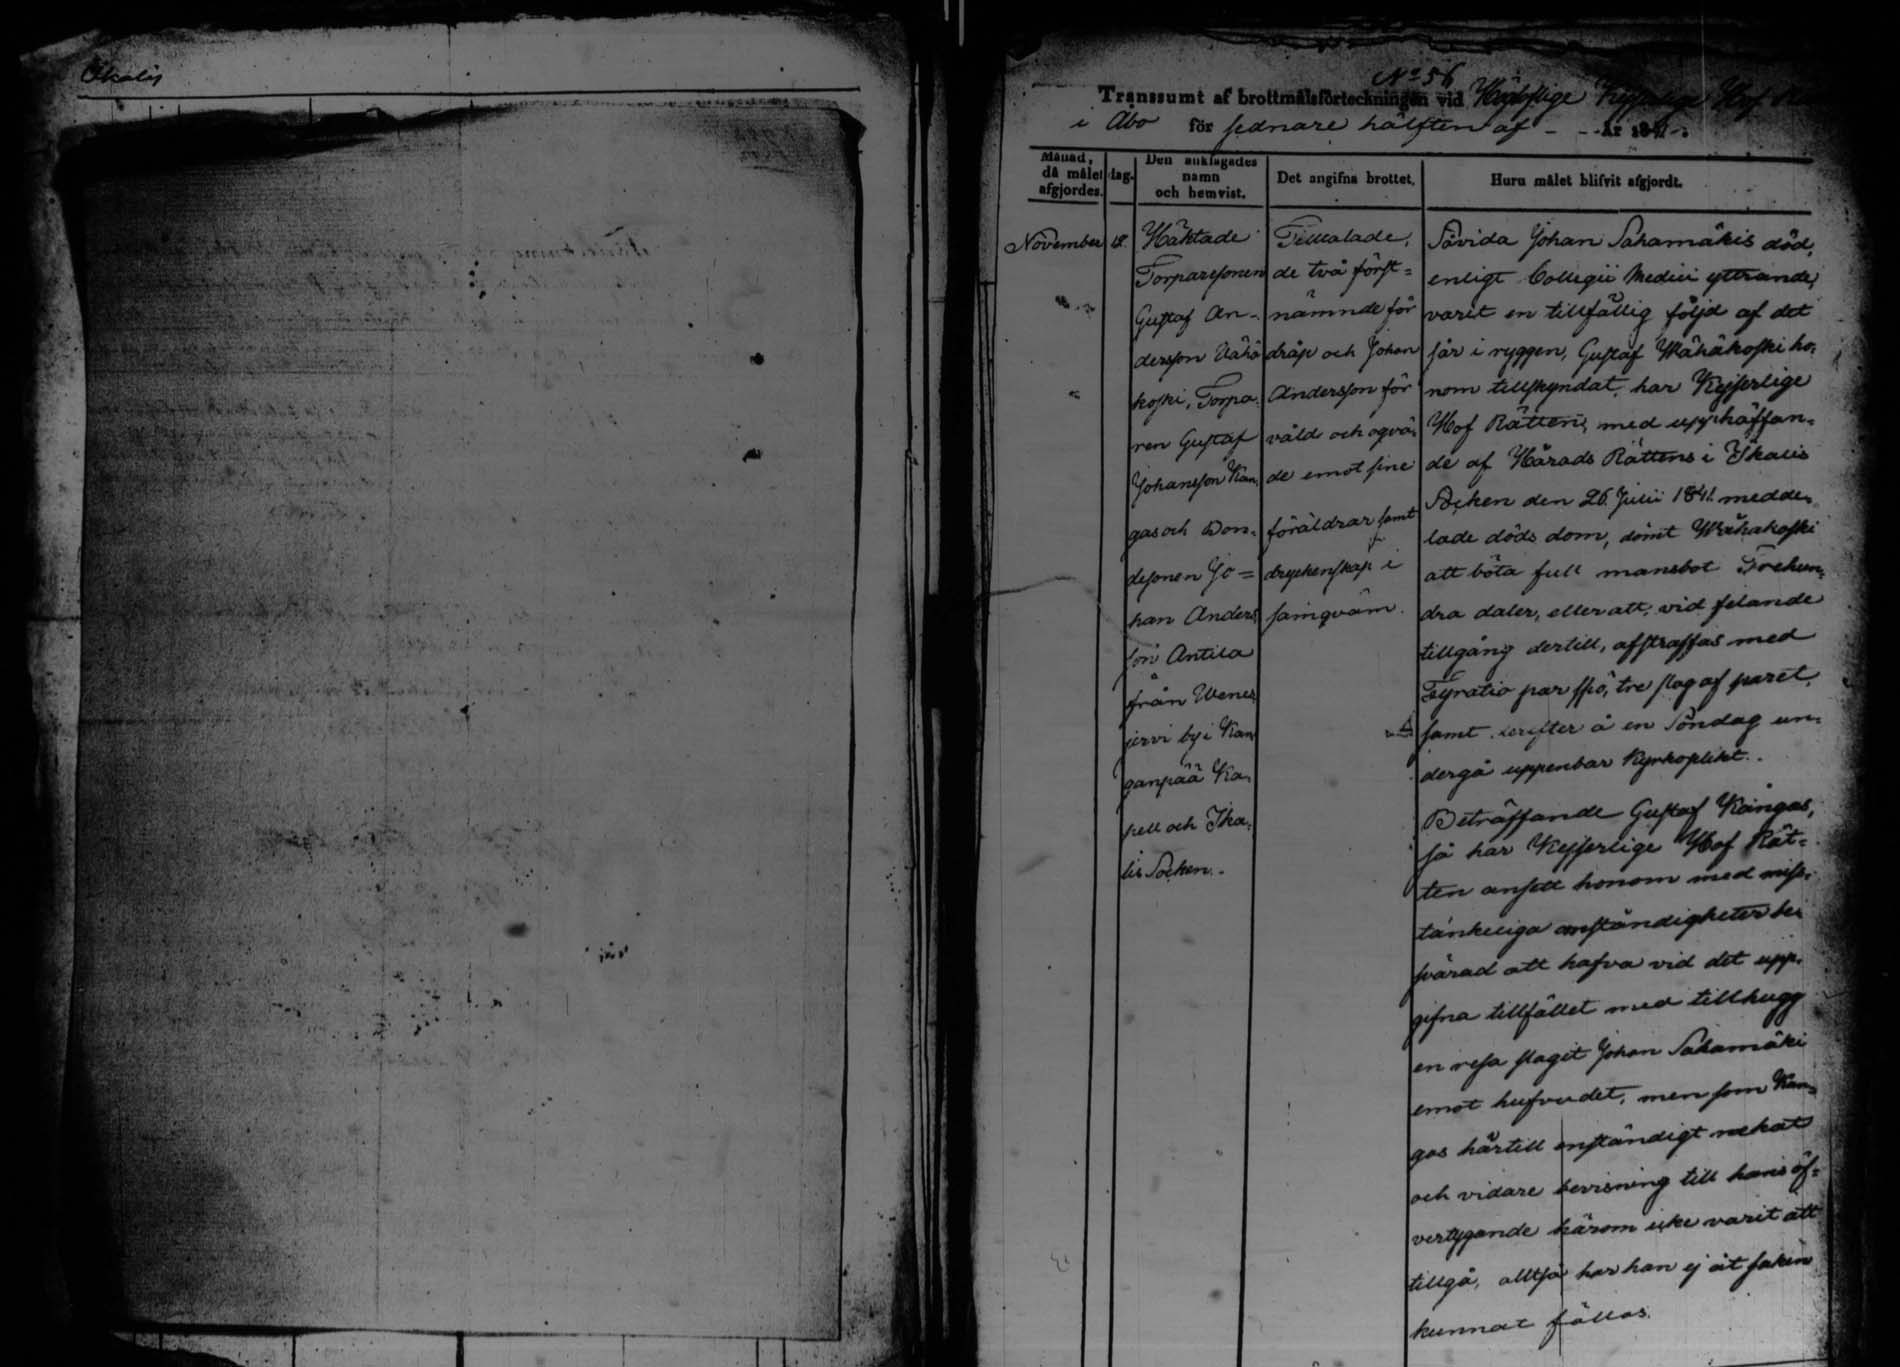 Ikalis
No 56
Transsumt af brottmålsförteckningen vid Högloflige Kejserlige Hof
i Åbo för sednare hälften af - - År 1841.
Månad,
då målet
afgjordes.
dag.
Den anklagades
namn
och hemvist.
Det angifna brottet.
Huru målet blifvit afgjordt.
November
18.
Häktade
Torparesonen
Gustaf An-
dersson Wähä
koski, Torpa-
ren Gustaf
Johansson Kan-
gas och Bon-
desonen Jo=
han Anders
son Antila
från Wenes
jervi by i Kan
ganpää Ka-
pell och Ika-
lis Socken.
Tilltalade,
de två först=
nämnde för
dråp och Johan
Andersson för
våld och oqvä-
de emot sine
föräldrar samt
dryckenskap i
samqväm.
Såvida Johan Sahamäkis död,
enligt Collegii Medici yttrande,
varit en tillfällig följd af det
sår i ryggen, Gustaf Wähäkoski ho-
nom tillskyndat, har Kejserlige
Hof Rätten, med upphäffan-
de af Härads Rättens i Ikalis
Socken den 26 Julii 1841 medde-
lade döds dom, dömt Wähäkoski
att böta full mansbot Trehun-
dra daler, eller att, vid felande
tillgång dertill, afstraffas med
Fyratio par spö, tre slag af paret,
samt derefter å en Söndag un-
dergå uppenbar Kyrkoplikt.
Beträffande Gustaf Kangas,
så har Kejserlige Hof Rät-
ten ansett honom med miss-
tänkeliga omständigheter be-
svärad att hafva vid det upp-
gifna tillfället med tillhugg
en resa slagit Johan Sahamäki
emot hufvudet, men som Kan-
gas härtill enständigt nekat
och vidare bevisning till hans öf-
vertygande härom icke varit att
tillgå, alltså har han ej åt saken
kunnat fällas.